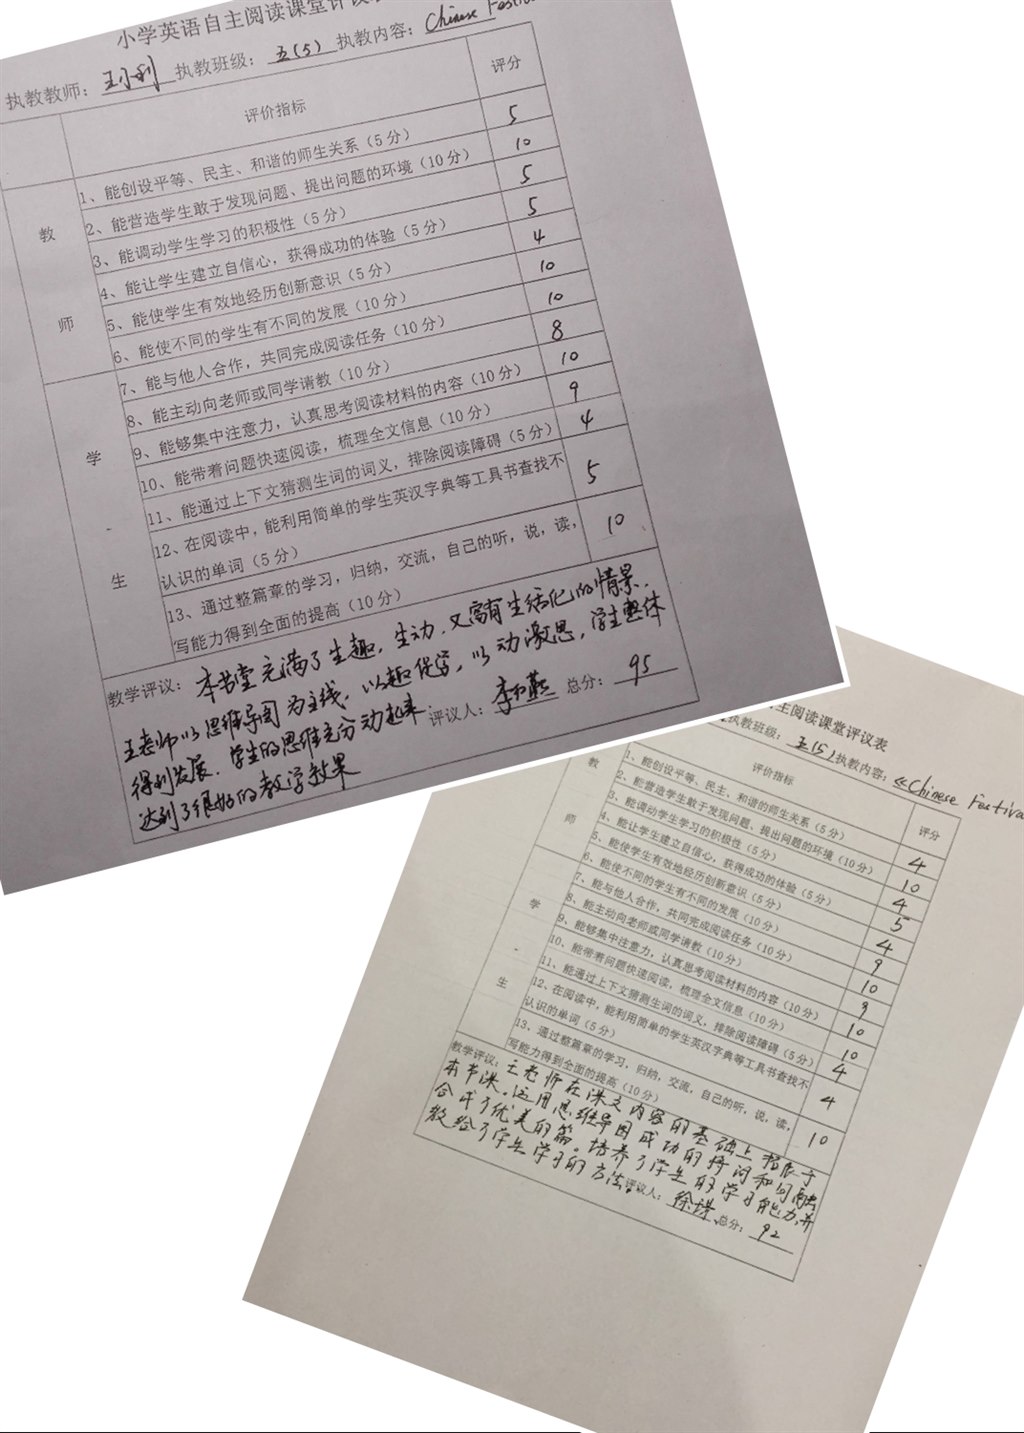 小学英语自主阅读课堂评议
执教教师：王小利 执教班级：五(5) 执教内容：Chinese Festiv
评价指标 评分
教师
1、能创设平等、民主、和谐的师生关系（5分） 5
2、能营造学生敢于发现问题、提出问题的环境（10分） 10
3、能调动学生学习的积极性（5分） 5
4、能让学生建立自信心，获得成功的体验（5分） 5
5、能使学生有效地经历创新意识（5分） 4
6、能使不同的学生有不同的发展（10分） 10
学生
7、能与他人合作，共同完成阅读任务（10分） 10
8、能主动向老师或同学请教（10分） 8
9、能够集中注意力，认真思考阅读材料的内容（10分） 10
10、能带着问题快速阅读，梳理全文信息（10分） 9
11、能通过上下文猜测生词的词义，排除阅读障碍（5分） 4
12、在阅读中，能利用简单的学生英汉字典等工具书查找不
认识的单词（5分） 5
13、通过整篇章的学习，归纳，交流，自己的听，说，读，
写能力得到全面的提高（10分） 10
教学评议：本书堂充满了生趣，生动，又富有生活化的情景．
王老师以思维导图为主线，以趣促学，以动激思，学生整体
得到发展．学生的思维充分动起来
达到了很好的教学效果
评议人：李 总分：95
主阅读课堂评议表
执教班级：五(5) 执教内容：《Chinese Festiva
评价指标 评分
教师
1、能创设平等、民主、和谐的师生关系（5分） 4
2、能营造学生敢于发现问题、提出问题的环境（10分） 10
3、能调动学生学习的积极性（5分） 4
4、能让学生建立自信心，获得成功的体验（5分） 5
5、能使学生有效地经历创新意识（5分） 4
6、能使不同的学生有不同的发展（10分） 9
学生
7、能与他人合作，共同完成阅读任务（10分） 10
8、能主动向老师或同学请教（10分） 9
9、能够集中注意力，认真思考阅读材料的内容（10分） 10
10、能带着问题快速阅读，梳理全文信息（10分） 10
11、能通过上下文猜测生词的词义，排除阅读障碍（5分） 4
12、在阅读中，能利用简单的学生英汉字典等工具书查找不
认识的单词（5分） 4
13、通过整篇章的学习，归纳，交流，自己的听，说，读，
写能力得到全面的提高（10分） 10
教学评议：王老师在课文内容的基础上 根据于
本节课．运用思维导图成功的将词和句融
合成了优美的篇。培养了学生的学习能力，并
教给了学生学习的方法
评议人：徐 总分：92